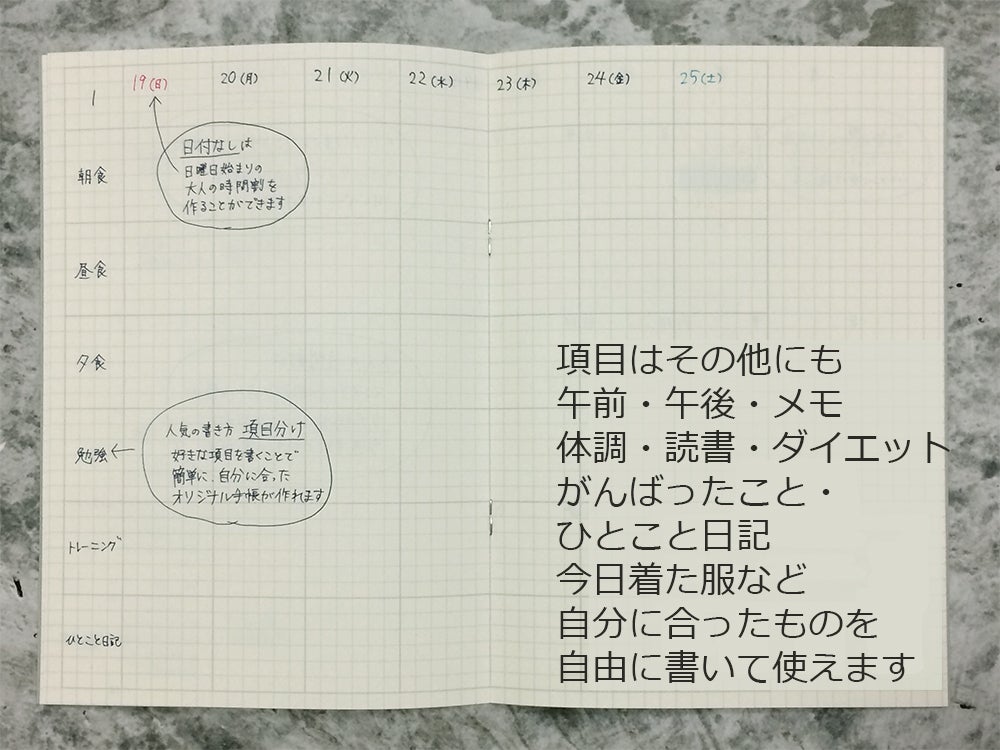 1
19(日)
20(月)
21(火)
22(水)
23(木)
24(金)
25(土)
朝食
日付なしは
日曜日始まりの
大人の時間割を
作ることができます
昼食
夕食
勉強
人気の書き方 項目分け
好きな項目を書くことで
簡単に、自分に合った
オリジナル手帳が作れます
トレーニング
ひとこと日記
項目はその他にも
午前・午後・メモ
体調・読書・ダイエット
がんばったこと・
ひとこと日記
今日着た服など
自分に合ったものを
自由に書いて使えます